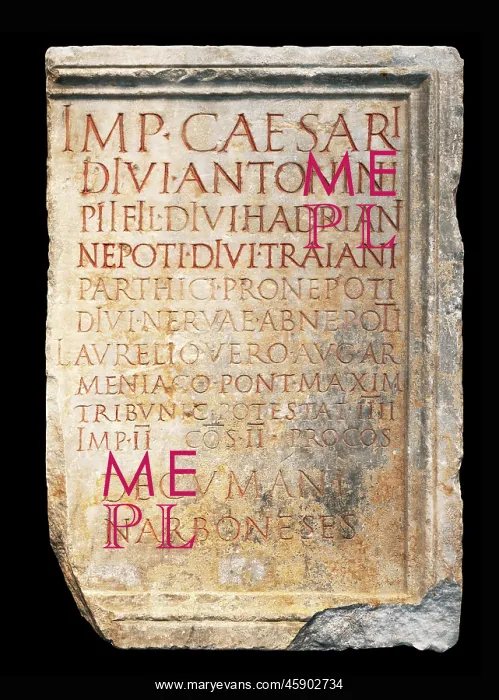 IMP·CAESARI
DIVI·ANTONINI
PII·FIL·DIVI·HADRIAN
NEPOTI·DIVI·TRAIANI
PARTHICI·PRONEPOTI
DIVI·NERVAE·ABNEPOTI
L AVRELIO VERO·AVG·AR
MENIACO·PONT·MAXIM
TRIBVNIC·POTESTAT·IIII
IMP·II COS·II PROCOS
DECVMANI
NARBONESES
ME
PL
ME
PL
www.maryevans.com/45902734